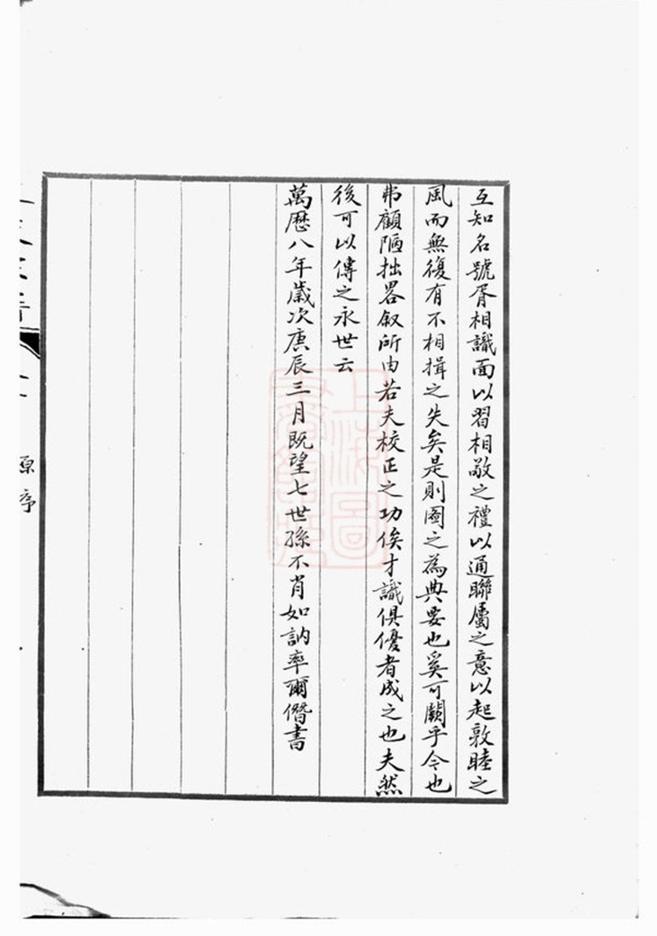 互知名號胥相識面以習相敬之禮以通聯屬之意以起敦睦之
風而無復有不相揖之失矣是則圖之為典要也奚可闕乎今也
弗顧陋拙畧叙所由若夫校正之功俟才識俱優者成之也夫然
後可以傳之永世云
萬歷八年歲次庚辰三月既望七世孫不肖如訥率爾僭書
原序
上海圖